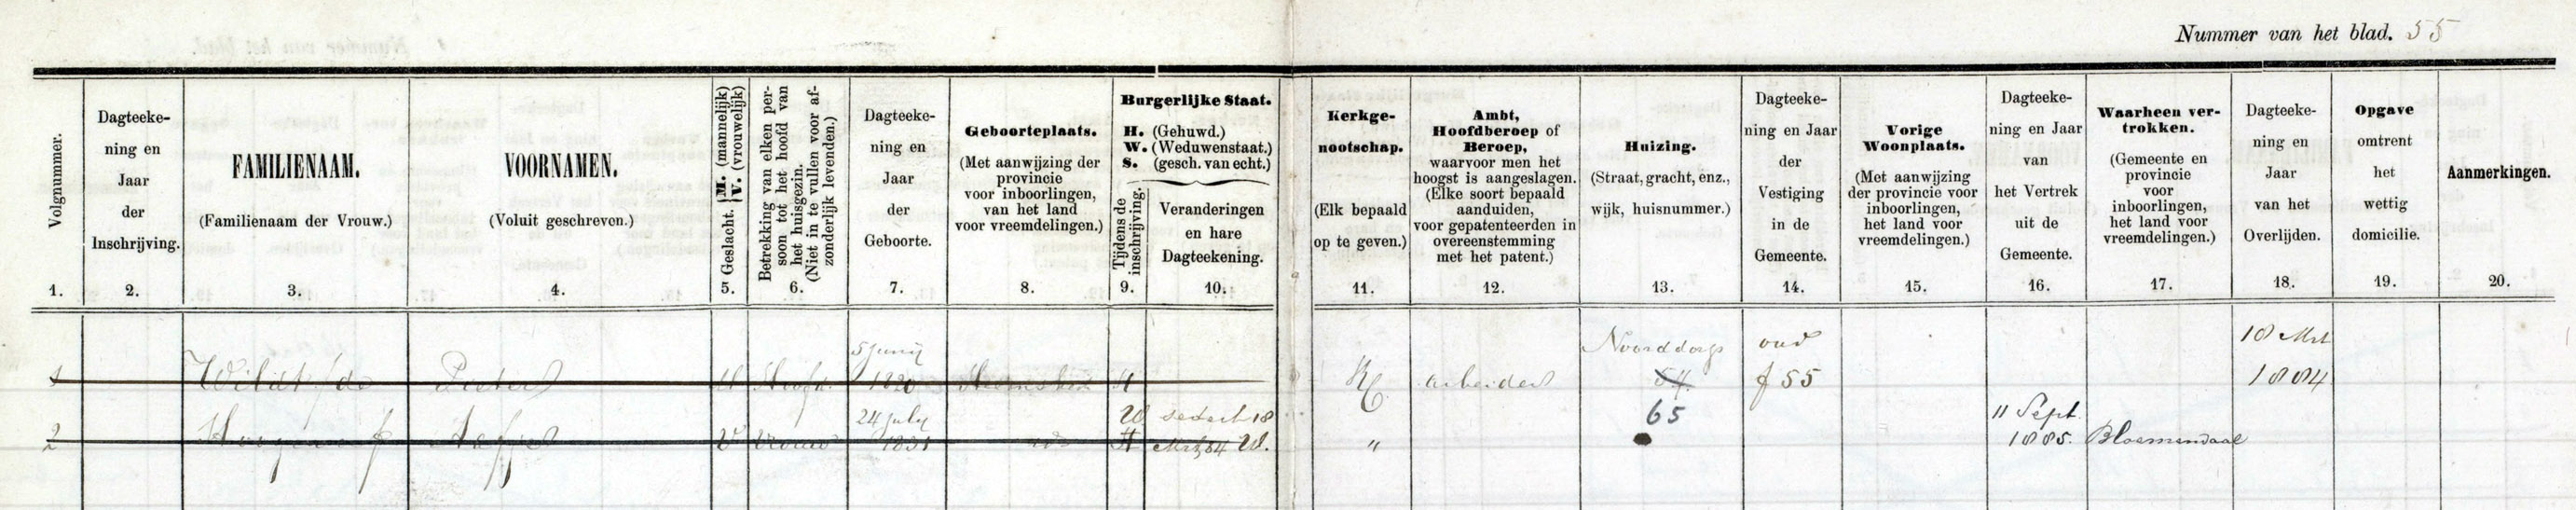 Nummer van het blad. 55
Volgnummer.
1.
Dagteeke-
ning en
Jaar
der
Inschrijving.
2.
FAMILIENAAM.
(Familienaam der Vrouw.)
3.
VOORNAMEN.
(Voluit geschreven.)
4.
Geslacht. M. (mannelijk)
V. (vrouwelijk)
5.
Betrekking van elken per-
soon tot het hoofd van
het huisgezin.
(Niet in te vullen voor af-
zonderlijk levenden.)
6.
Dagteeke-
ning en
Jaar
der
Geboorte.
7.
Geboorteplaats.
(Met aanwijzing der
provincie
voor inboorlingen,
van het land
voor vreemdelingen.)
8.
Burgerlijke Staat.
H. (Gehuwd.)
W. (Weduwenstaat.)
S. (gesch. van echt.)
Tijdens de
inschrijving.
9.
Veranderingen
en hare
Dagteekening.
10.
Kerkge-
nootschap.
(Elk bepaald
op te geven.)
11.
Ambt,
Hoofdberoep of
Beroep,
waarvoor men het
hoogst is aangeslagen.
(Elke soort bepaald
aanduiden,
voor gepatenteerden in
overeenstemming
met het patent.)
12.
Huizing.
(Straat, gracht, enz.,
wijk, huisnummer.)
13.
Dagteeke-
ning en Jaar
der
Vestiging
in de
Gemeente.
14.
Vorige
Woonplaats.
(Met aanwijzing
der provincie voor
inboorlingen,
het land voor
vreemdelingen.)
15.
Dagteeke-
ning en Jaar
van
het Vertrek
uit de
Gemeente.
16.
Waarheen ver-
trokken.
(Gemeente en
provincie
voor
inboorlingen,
het land voor
vreemdelingen.)
17.
Dagteeke-
ning en
Jaar
van het
Overlijden.
18.
Opgave
omtrent
het
wettig
domicilie.
19.
Aanmerkingen.
20.
1 Wildt / de Pieter M Hoofd 5 Junij 1820 Heemskerk H
RC arbeider Noorddorp 54 oud f 55 18 Mrt 1884
2 V Vrouw 24 July 1831 W H sedert 18 Mrt 84 W.
" 65 11 Sept. 1885. Bloemendaal